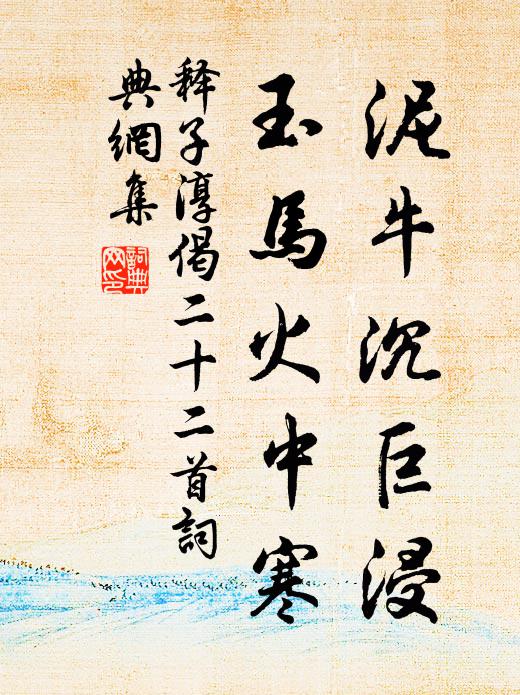 泥牛沉巨浸
玉馬火中寒
释子淳偈二十二首詞
典網集
詞典
网印